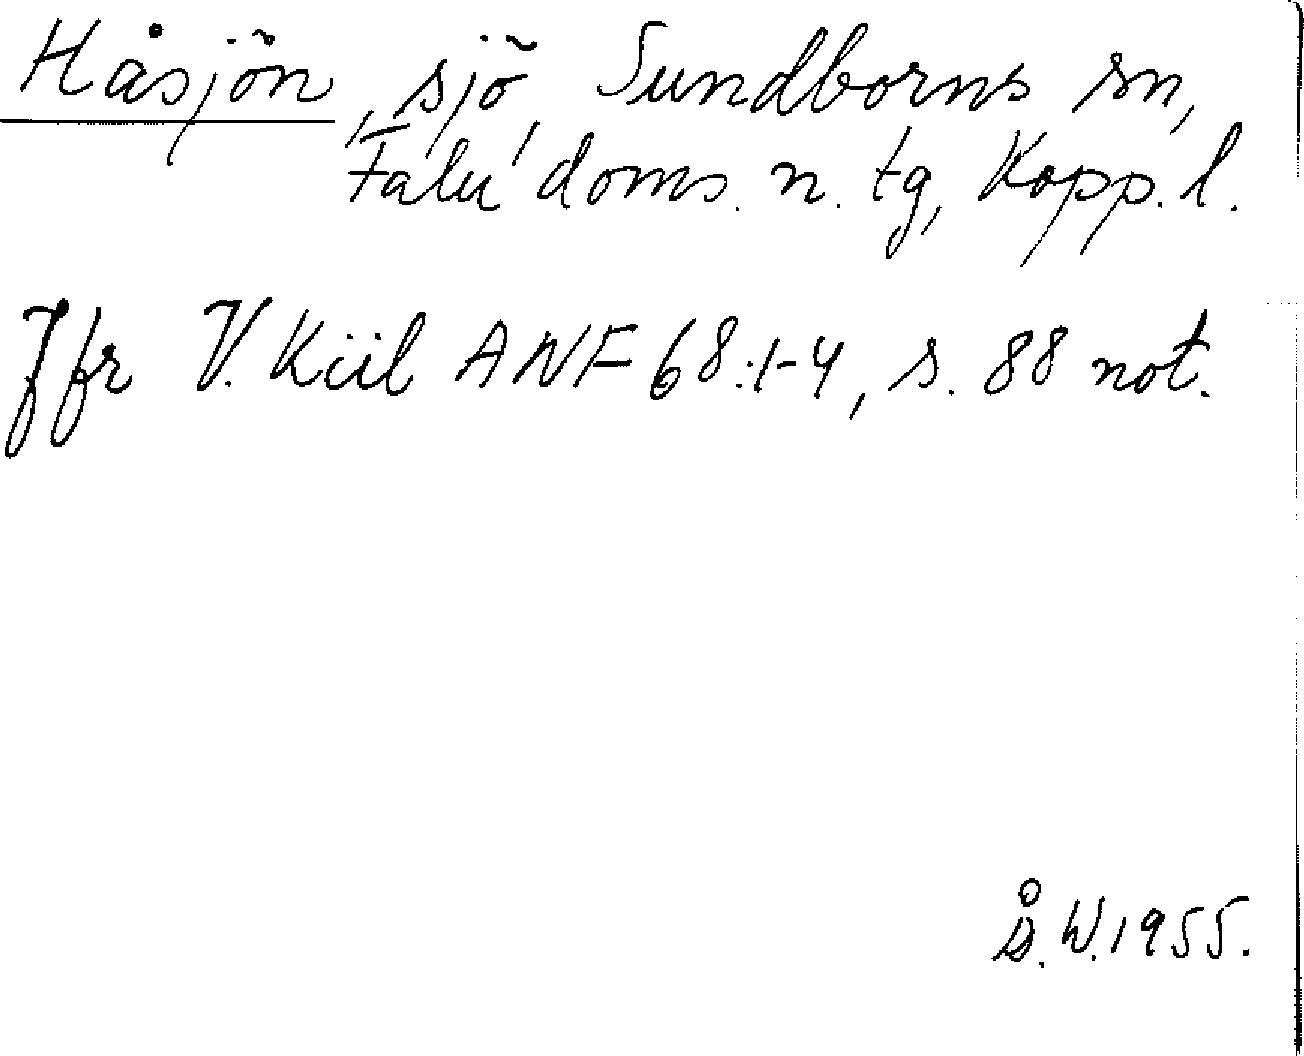 Håsjön, sjö, Sundborns sn,
Falu doms. n. tg, Kopp. l.
Jfr V. Kiil ANF 68:1-4, s. 88 not.
Å. W. 1955.